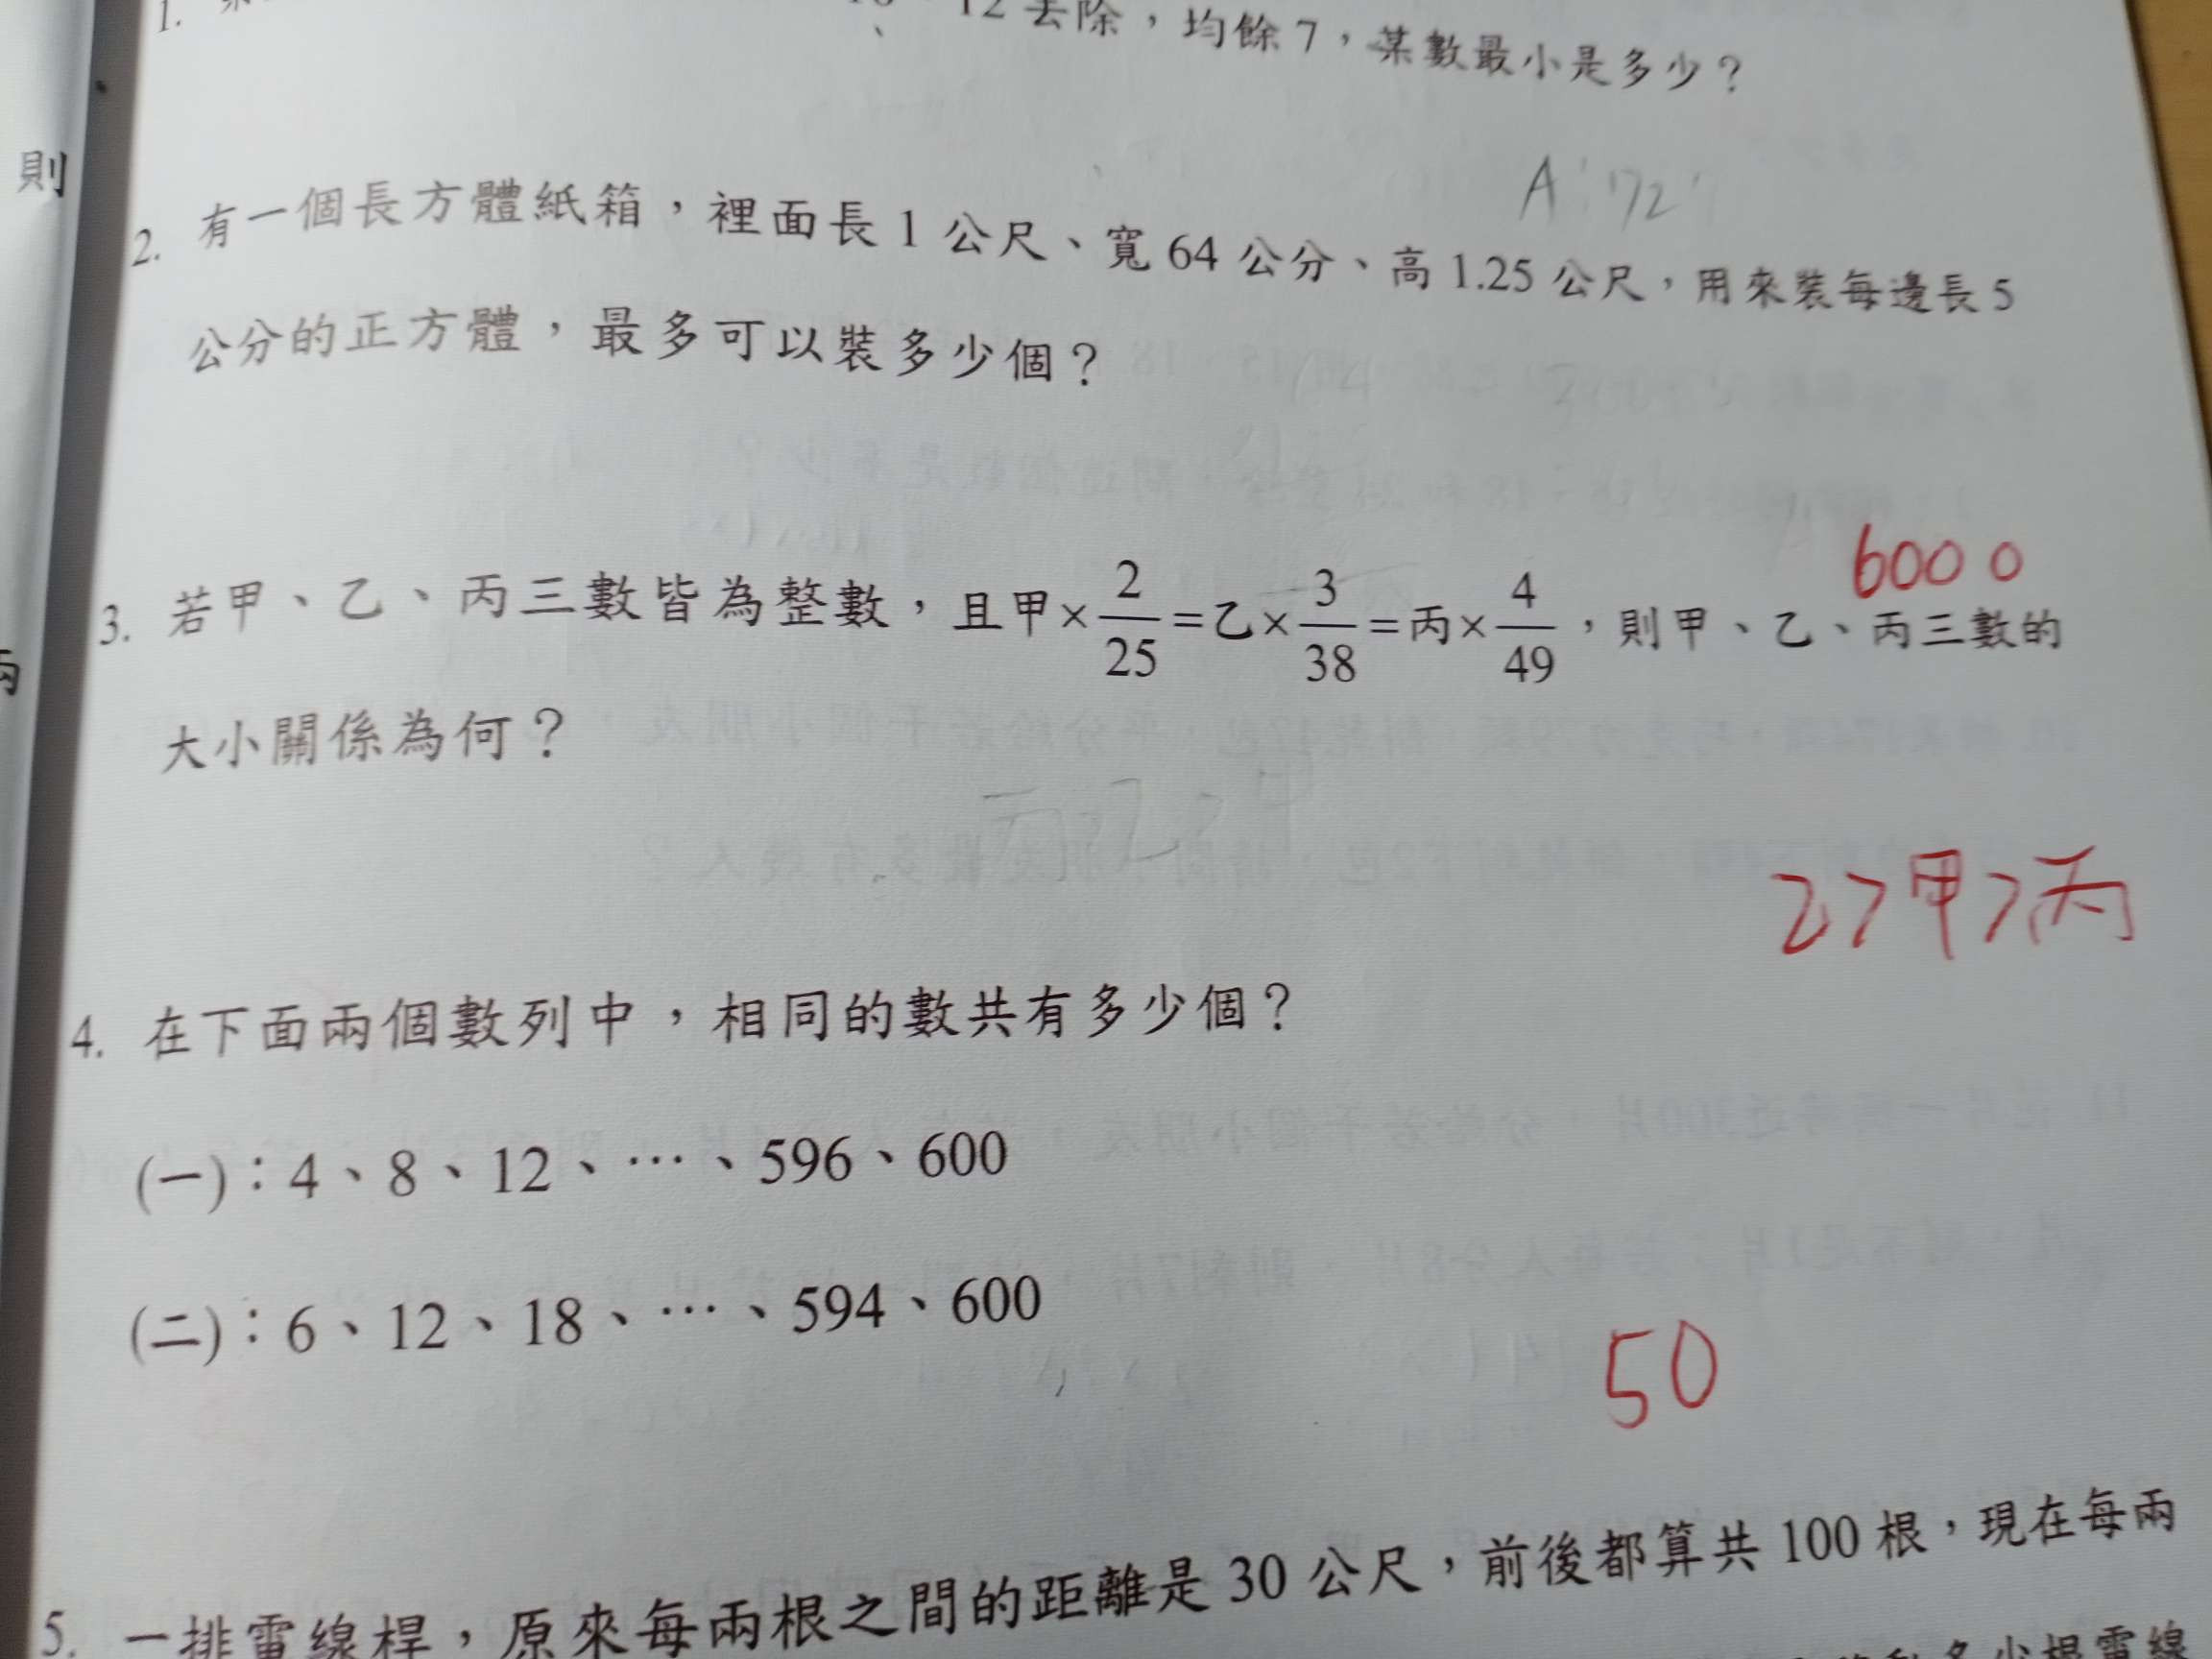 1.
12去除，均餘7，某數最小是多少？
則
A:72
2. 有一個長方體紙箱，裡面長1公尺、寬64公分、高1.25公尺，用來裝每邊長5
公分的正方體，最多可以裝多少個？
6000
3. 若甲、乙、丙三數皆為整數，且甲×2/25=乙×3/38=丙×4/49，則甲、乙、丙三數的
大小關係為何？
乙>甲>丙
4. 在下面兩個數列中，相同的數共有多少個？
(一)：4、8、12、…、596、600
(二)：6、12、18、…、594、600
50
5. 一排電線桿，原來每兩根之間的距離是30公尺，前後都算共100根，現在每兩
多少根電線